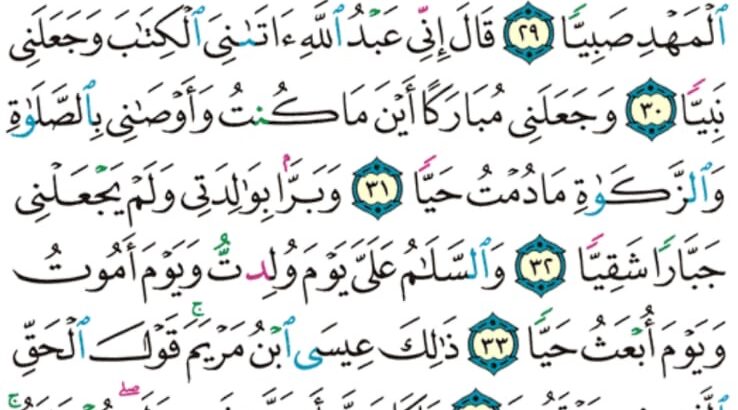 ٱلْمَهْدِ صَبِيًّا ٢٩ قَالَ إِنِّي عَبْدُ ٱللَّهِ ءَاتَىٰنِيَ ٱلْكِتَٰبَ وَجَعَلَنِي
نَبِيًّا ٣٠ وَجَعَلَنِي مُبَارَكًا أَيْنَ مَا كُنتُ وَأَوْصَٰنِي بِٱلصَّلَوٰةِ
وَٱلزَّكَوٰةِ مَا دُمْتُ حَيًّا ٣١ وَبَرًّۢا بِوَٰلِدَتِي وَلَمْ يَجْعَلْنِي
جَبَّارًا شَقِيًّا ٣٢ وَٱلسَّلَٰمُ عَلَيَّ يَوْمَ وُلِدتُّ وَيَوْمَ أَمُوتُ
وَيَوْمَ أُبْعَثُ حَيًّا ٣٣ ذَٰلِكَ عِيسَى ٱبْنُ مَرْيَمَ ۚ قَوْلَ ٱلْحَقِّ